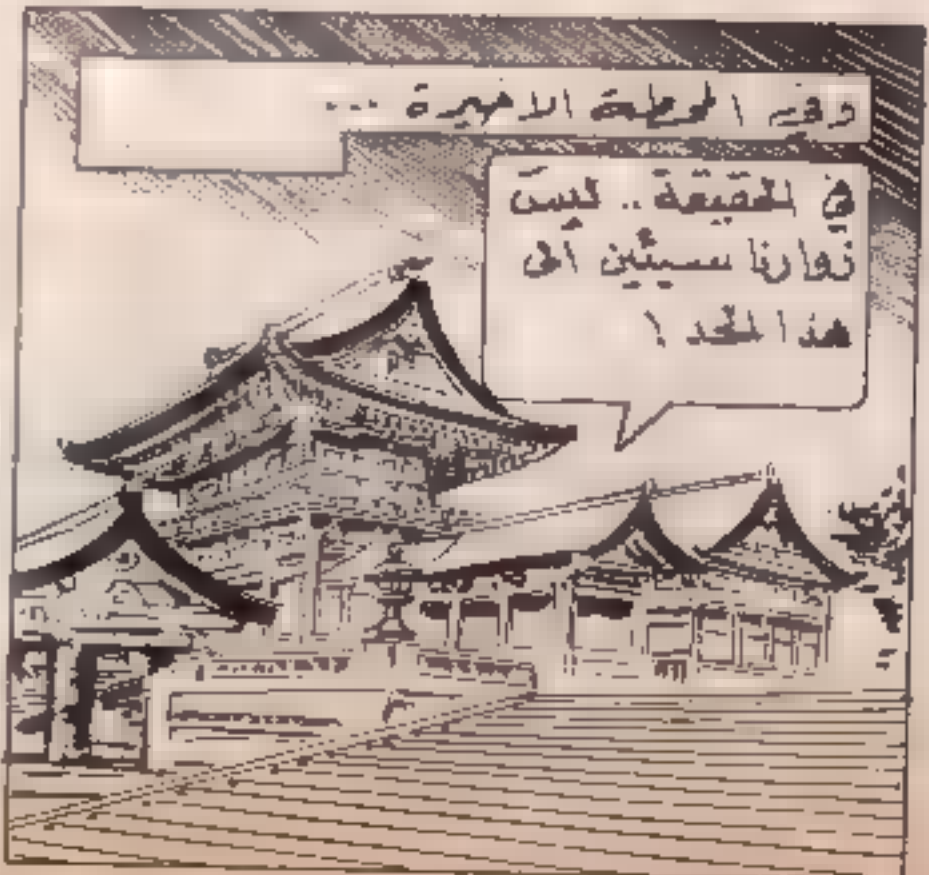 وفي اللحظة الاخيرة ...
في الحقيقة .. ليس
زوارنا سيئين الى
هذا الحد !